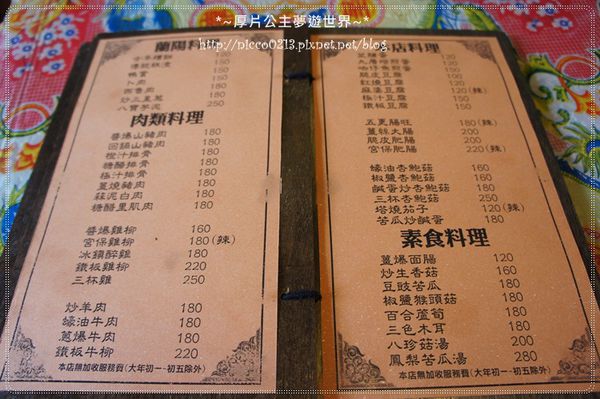 *~厚片公主夢遊世界~*
http://nicco0213.pixnet.net/blog
蘭陽料理
150
鴨賞 150
卜肉 150
西魯肉 150
炒三星蔥 150
八寶芋泥 250
肉類料理
醬爆山豬肉 180
回鍋山豬肉 180
橙汁排骨 180
糖醋排骨 180
極汁排骨 180
薑燒豬肉 180
蒜泥白肉 180
糖醋里肌肉 180
醬爆雞柳 160
宮保雞柳 180(辣)
冰鎮醉雞 180
鐵板雞柳 220
三杯雞 250
炒羊肉 180
蠔油牛肉 180
蔥爆牛肉 180
鐵板牛柳 220
本店無加收服務費(大年初一~初五除外)
店料理
120
120
脆皮豆腐 120
紅燒豆腐 120
麻婆豆腐 120(辣)
極汁豆腐 120
鐵板豆腐 150
五更腸旺 180(辣)
薑絲大腸 200
脆皮肥腸 220
宮保肥腸 220(辣)
蠔油杏鮑菇 160
椒鹽杏鮑菇 180
鹹蛋炒杏鮑菇 180
三杯杏鮑菇 250
塔燒茄子 220(辣)
苦瓜炒鹹蛋 180
素食料理
薑爆面腸 120
炒生香菇 160
豆豉苦瓜 180
椒鹽猴頭菇 180
百合蘆筍 180
三色木耳 180
八珍菇湯 200
鳳梨苦瓜湯 280
本店無加收服務費(大年初一~初五除外)